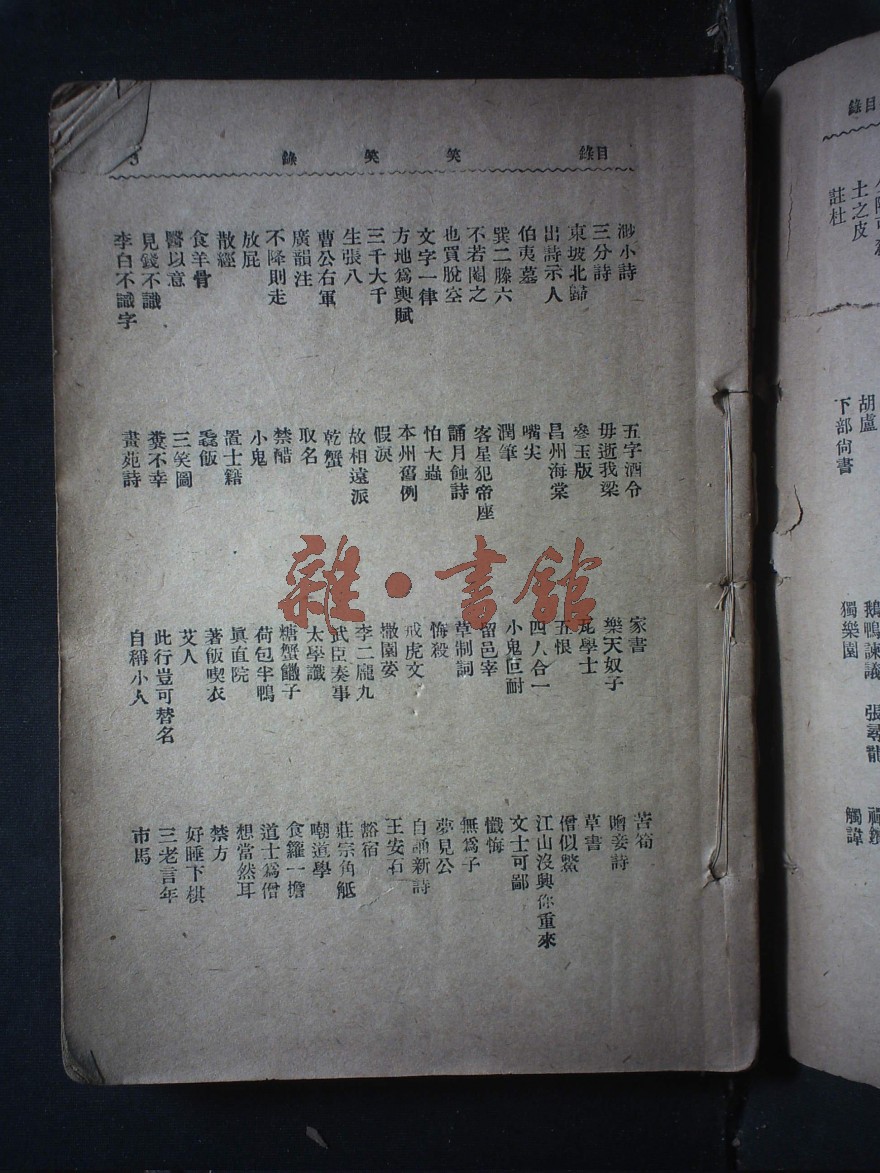 目錄
笑笑錄
3
渺小詩
三分詩
東坡北歸
出詩示人
伯夷墓
巽二滕六
不若閹之
也買脫空
文字一律
方地爲輿賦
三千大千
生張八
曹公右軍
廣韻注
不降則走
放屁
散經
食羊骨
醫以意
見錢不識
李白不識字
五字酒令
毋逝我梁
叅玉版
昌州海棠
嘴尖
潤筆
客星犯帝座
誦月蝕詩
怕大蟲
本州舊例
假淚
故相遠派
乾蟹
取名
禁酷
小鬼
置士籍
毳飯
三笑圖
糞不幸
畫苑詩
家書
樂天奴子
瓦學士
五恨
四八合一
小鬼叵耐
留邑宰
草制詞
悔殺
戒虎文
撒園荽
李二龐九
武臣奏事
太學讖
糖蟹饊子
荷包半鴨
眞直院
著飯喫衣
艾人
此行豈可替名
自稱小人
苦筍
噲妾詩
草書
僧似鱉
江山沒興你重來
文士可鄙
懺悔
無爲子
夢見公
自誦新詩
王安石
豁宿
莊宗角觝
嘲道學
食籮一擔
道士爲僧
想當然耳
禁方
好睡下棋
三老言年
市馬
雜·書館
目錄
士之皮
註杜
胡盧
下部尙書
鵝鴨諫議
獨樂園
張尋龍
觸諱